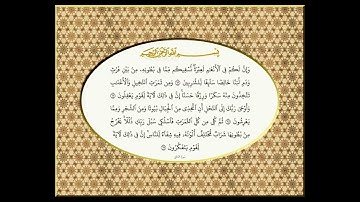 بِسْمِ اللَّهِ الرَّحْمَٰنِ الرَّحِيمِ
وَإِنَّ لَكُمْ فِي ٱلْأَنْعَٰمِ لَعِبْرَةً نُّسْقِيكُم مِّمَّا فِي بُطُونِهِۦ مِنۢ بَيْنِ فَرْثٍ
وَدَمٍ لَّبَنًا خَالِصًا سَآئِغًا لِّلشَّٰرِبِينَ ۝ وَمِن ثَمَرَٰتِ ٱلنَّخِيلِ وَٱلْأَعْنَٰبِ
تَتَّخِذُونَ مِنْهُ سَكَرًا وَرِزْقًا حَسَنًا إِنَّ فِي ذَٰلِكَ لَءَايَةً لِّقَوْمٍ يَعْقِلُونَ ۝
وَأَوْحَىٰ رَبُّكَ إِلَى ٱلنَّحْلِ أَنِ ٱتَّخِذِي مِنَ ٱلْجِبَالِ بُيُوتًا وَمِنَ ٱلشَّجَرِ وَمِمَّا
يَعْرِشُونَ ۝ ثُمَّ كُلِي مِن كُلِّ ٱلثَّمَرَٰتِ فَٱسْلُكِي سُبُلَ رَبِّكِ ذُلُلًا يَخْرُجُ
مِنۢ بُطُونِهَا شَرَابٌ مُّخْتَلِفٌ أَلْوَٰنُهُۥ فِيهِ شِفَآءٌ لِّلنَّاسِ إِنَّ فِي ذَٰلِكَ لَءَايَةً
لِّقَوْمٍ يَتَفَكَّرُونَ ۝